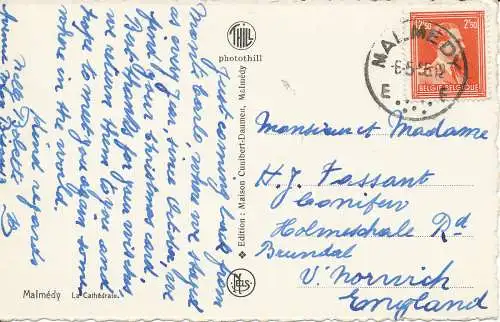 Just coming back from
Monte Carlo, where we stayed
as every year since October, we
find your Christmas card.
Best thanks for your wishes,
we return them to you and
hope to meet you again some
where in the world.
Kind regards
THILL
photothill
Edition : Maison Cunibert-Daumen, Malmédy
NELS
Malmédy La Cathédrale.
MALMEDY
E E
2F50 2F50
BELGIE-BELGIQUE
Monsieur et Madame
H. J. Fassant
Conifer
Holmeschale Rd
Brundal
V. Norwich
England